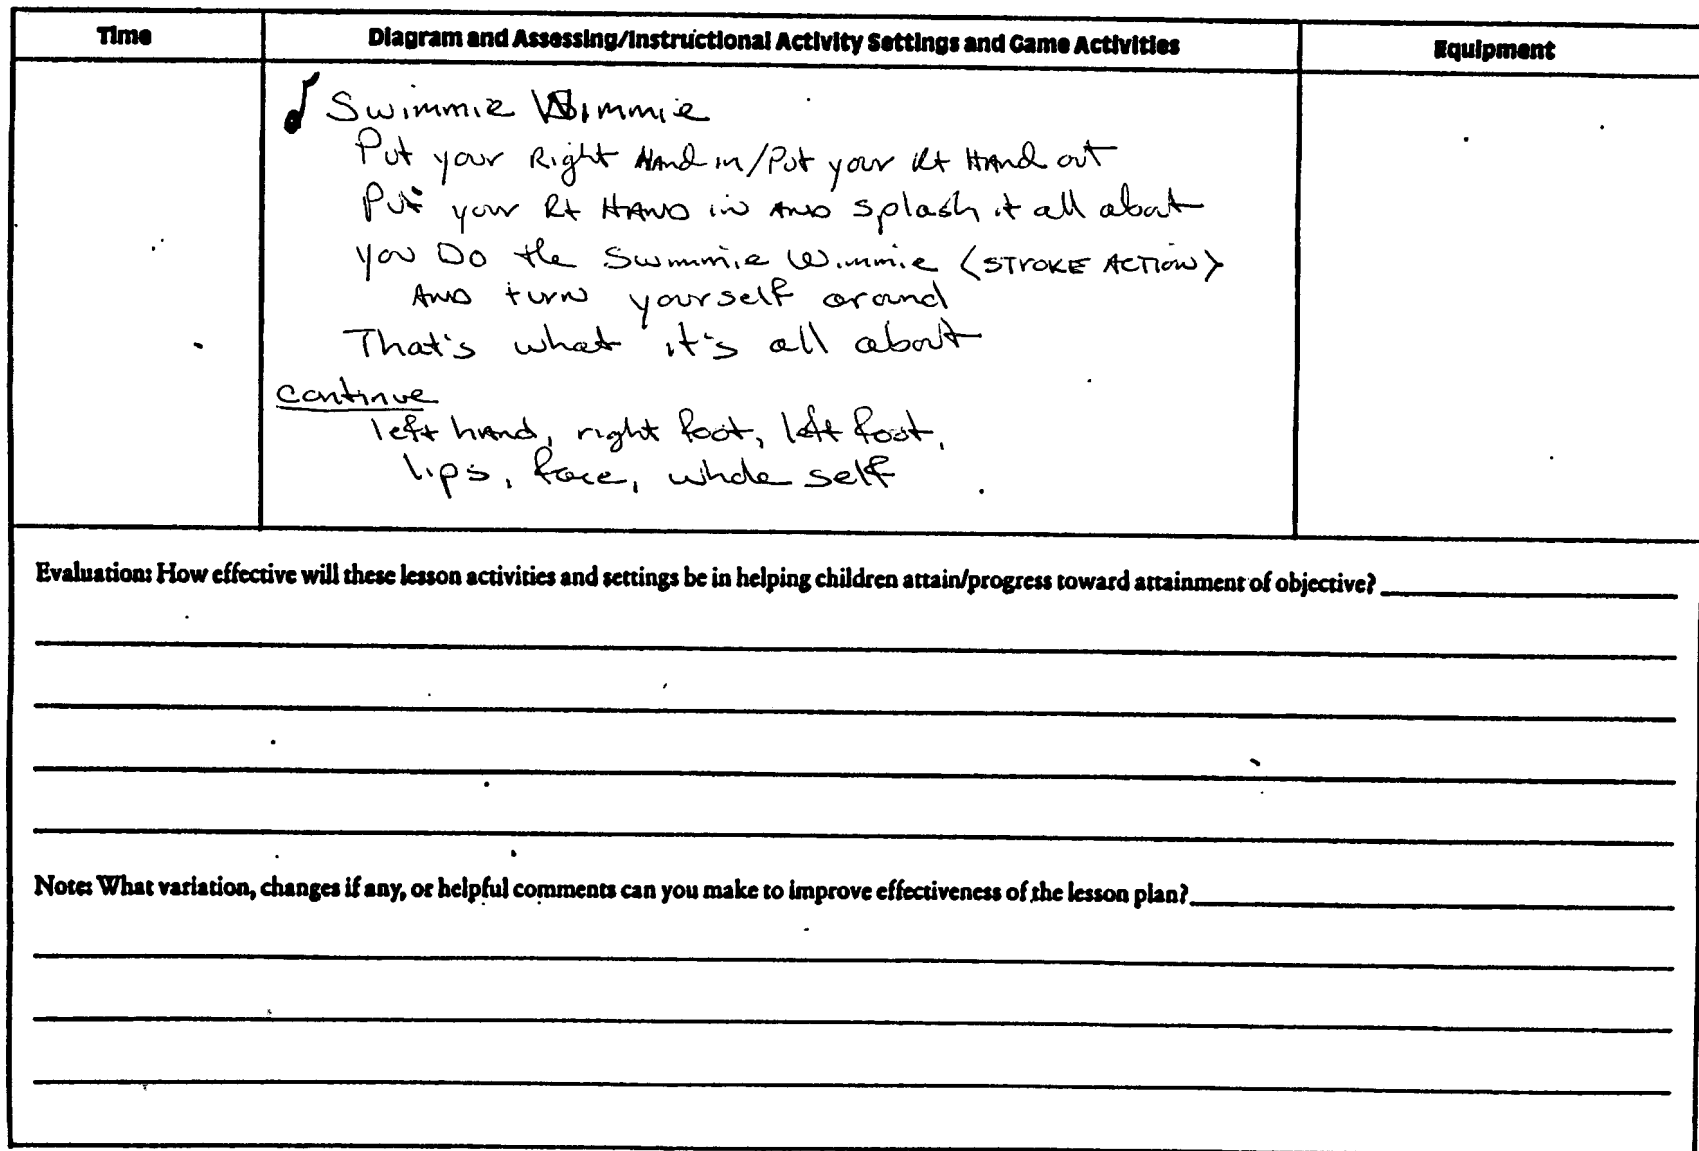 Time
Diagram and Assessing/Instructional Activity Settings and Game Activities
Equipment
Swimmie Wimmie
Put your Right Hand in/Put your Rt Hand out
Put your Rt HAND in AND splash it all about
you Do the Swimmie Wimmie (STROKE ACTION)
AND turn yourself around
That's what it's all about
continue
left hand, right foot, left foot,
lips, face, whole self
Evaluation: How effective will these lesson activities and settings be in helping children attain/progress toward attainment of objective?
Note: What variation, changes if any, or helpful comments can you make to improve effectiveness of the lesson plan?